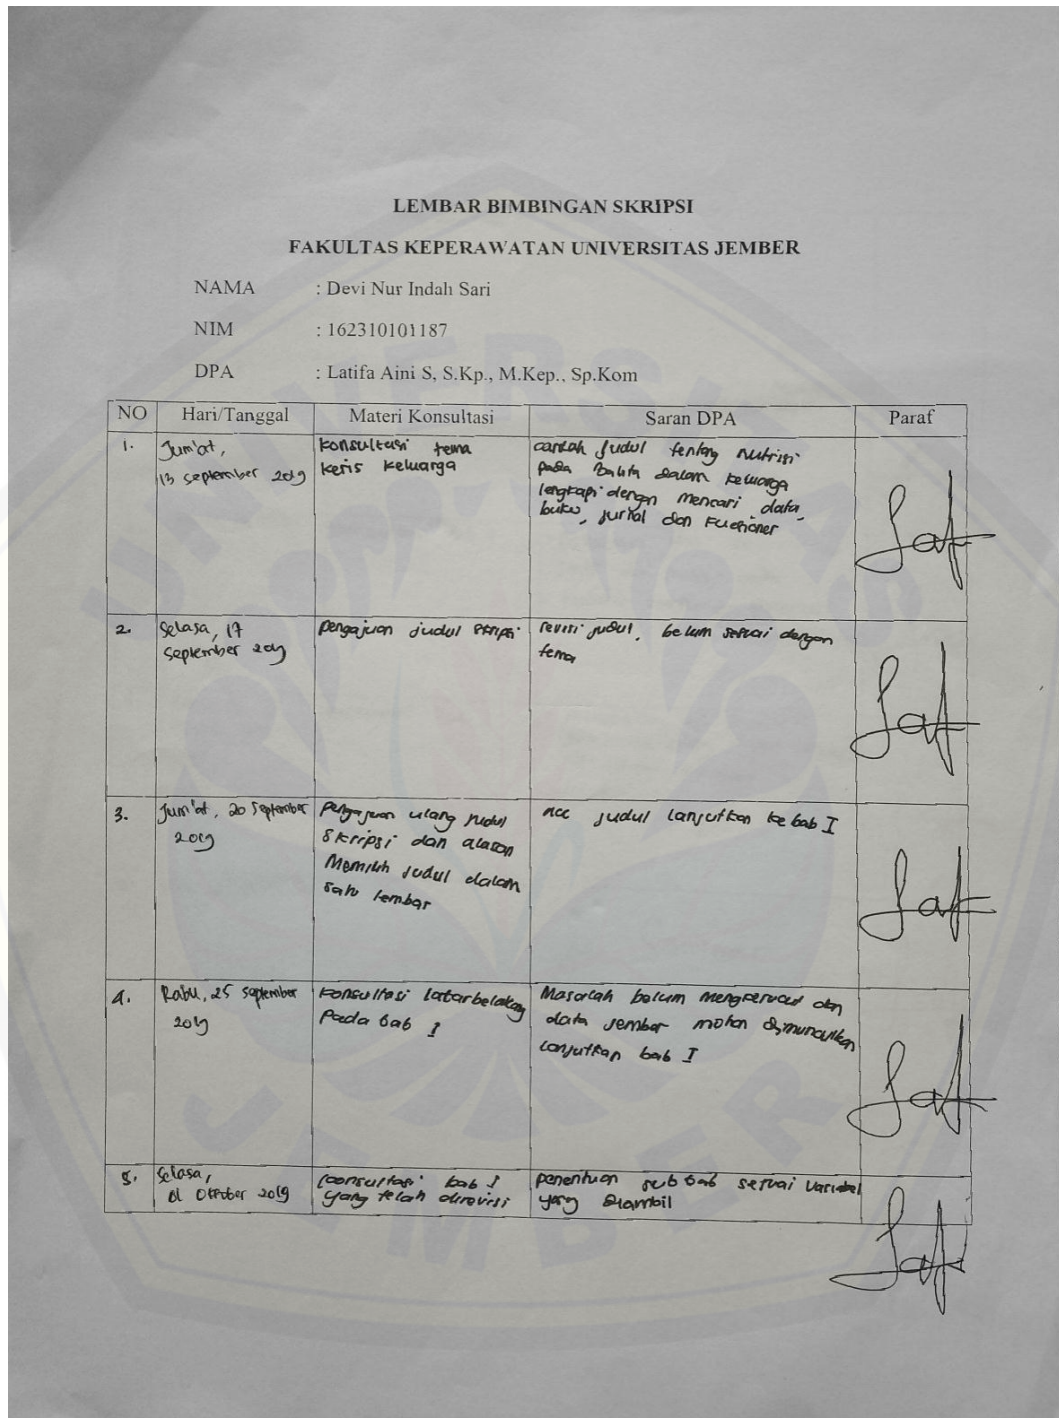 LEMBAR BIMBINGAN SKRIPSI
FAKULTAS KEPERAWATAN UNIVERSITAS JEMBER
NAMA : Devi Nur Indah Sari
NIM : 162310101187
DPA : Latifa Aini S, S.Kp., M.Kep., Sp.Kom
NO Hari/Tanggal Materi Konsultasi Saran DPA Paraf
1. Jum'at,
13 september 2019
konsultasi tema
keris keluarga
carilah judul tentang nutrisi
pada Balita dalam keluarga
lengkapi dengan mencari data,
buku, jurnal dan kuesioner
2. Selasa, 17
September 2019
pengajuan judul skripsi
revisi judul, belum sesuai dengan
tema
3. Jum'at, 20 September
2019
pengajuan ulang judul
skripsi dan alasan
Memilih judul dalam
satu lembar
acc judul lanjutkan ke bab I
4. Rabu, 25 September
2019
konsultasi latar belakang
pada bab I
Masalah belum mengkerucut dan
data jember mohon dimunculkan
lanjutkan bab I
5. Selasa,
01 Oktober 2019
konsultasi bab I
yang telah direvisi
penentuan sub bab sesuai variabel
yang diambil
UNIVERSITAS
JEMBER